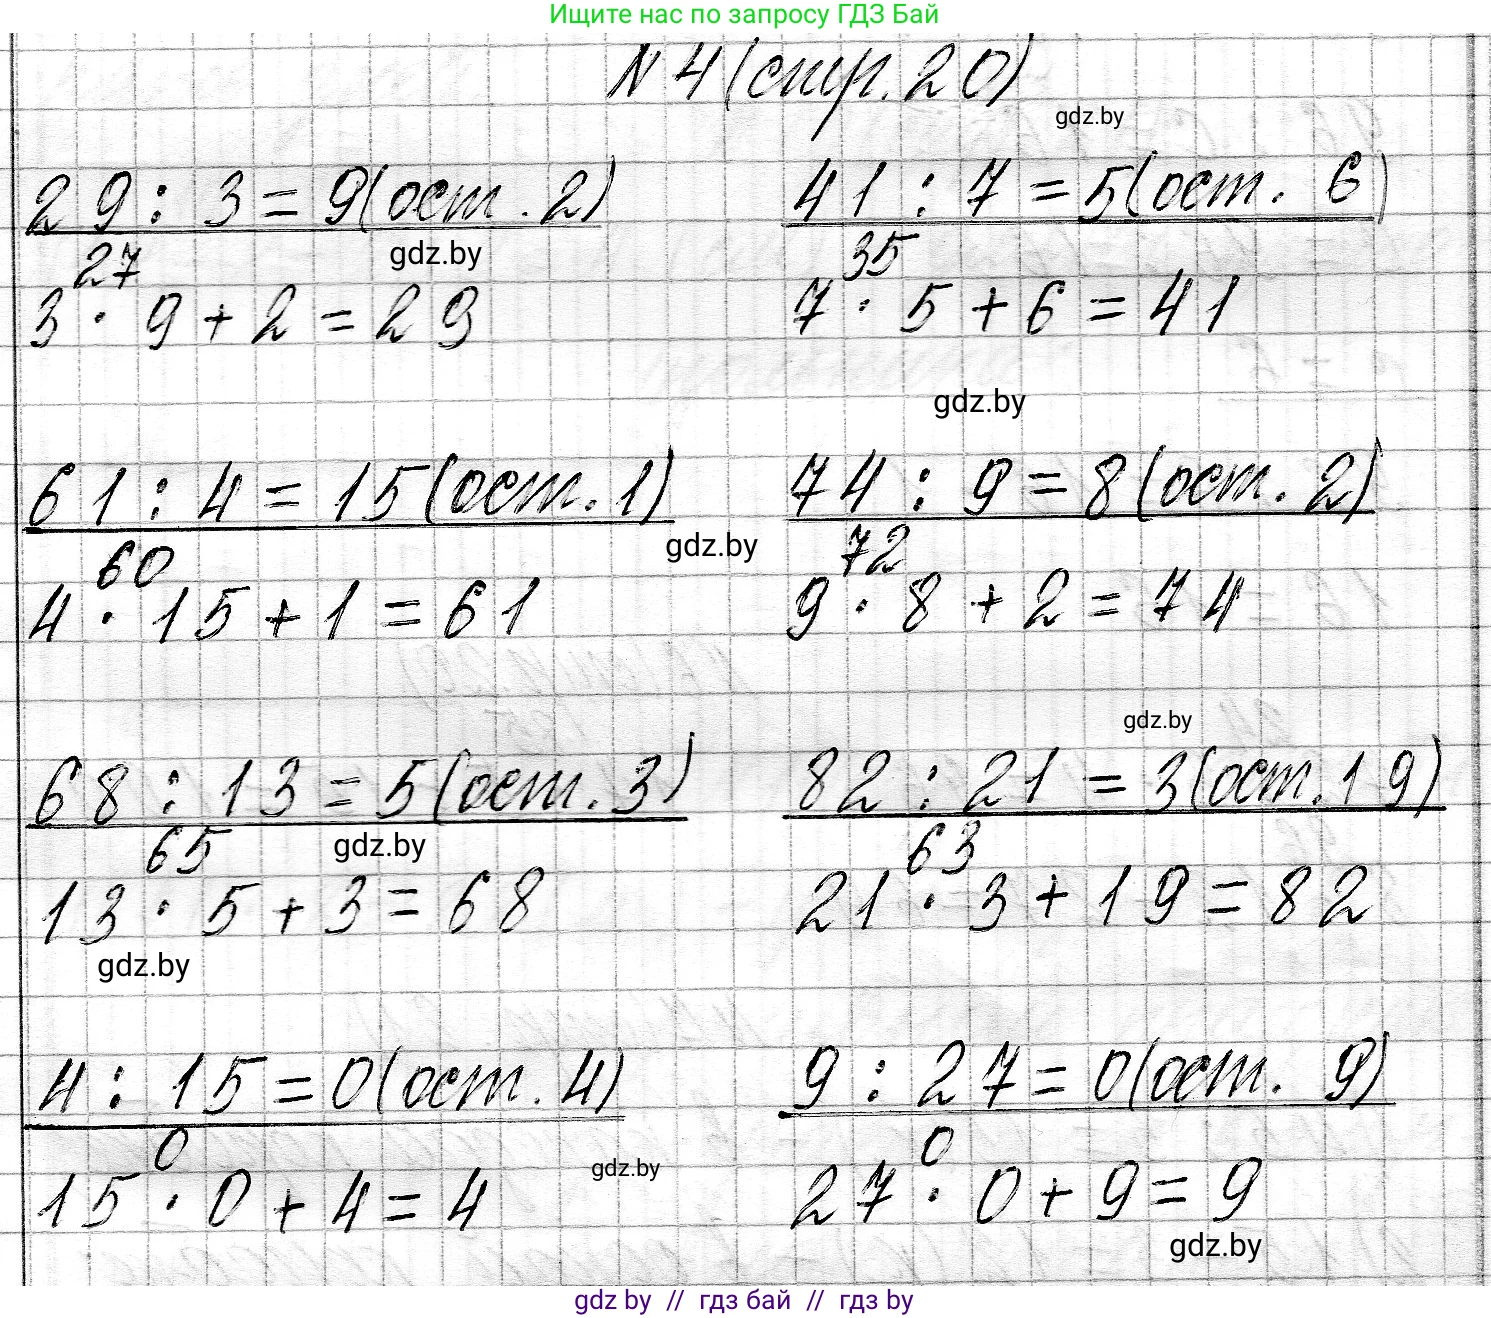 Ищите нас по запросу ГДЗ Бай
N 4 (стр. 20)
gdz.by
29 : 3 = 9 (ост. 2)
41 : 7 = 5 (ост. 6)
27
gdz.by
35
3 · 9 + 2 = 29
7 · 5 + 6 = 41
gdz.by
61 : 4 = 15 (ост. 1)
74 : 9 = 8 (ост. 2)
60
gdz.by
72
4 · 15 + 1 = 61
9 · 8 + 2 = 74
gdz.by
68 : 13 = 5 (ост. 3)
82 : 21 = 3 (ост. 19)
65
gdz.by
63
13 · 5 + 3 = 68
21 · 3 + 19 = 82
gdz.by
4 : 15 = 0 (ост. 4)
9 : 27 = 0 (ост. 9)
0
0
gdz.by
15 · 0 + 4 = 4
27 · 0 + 9 = 9
gdz.by
gdz by // гдз бай // гдз by